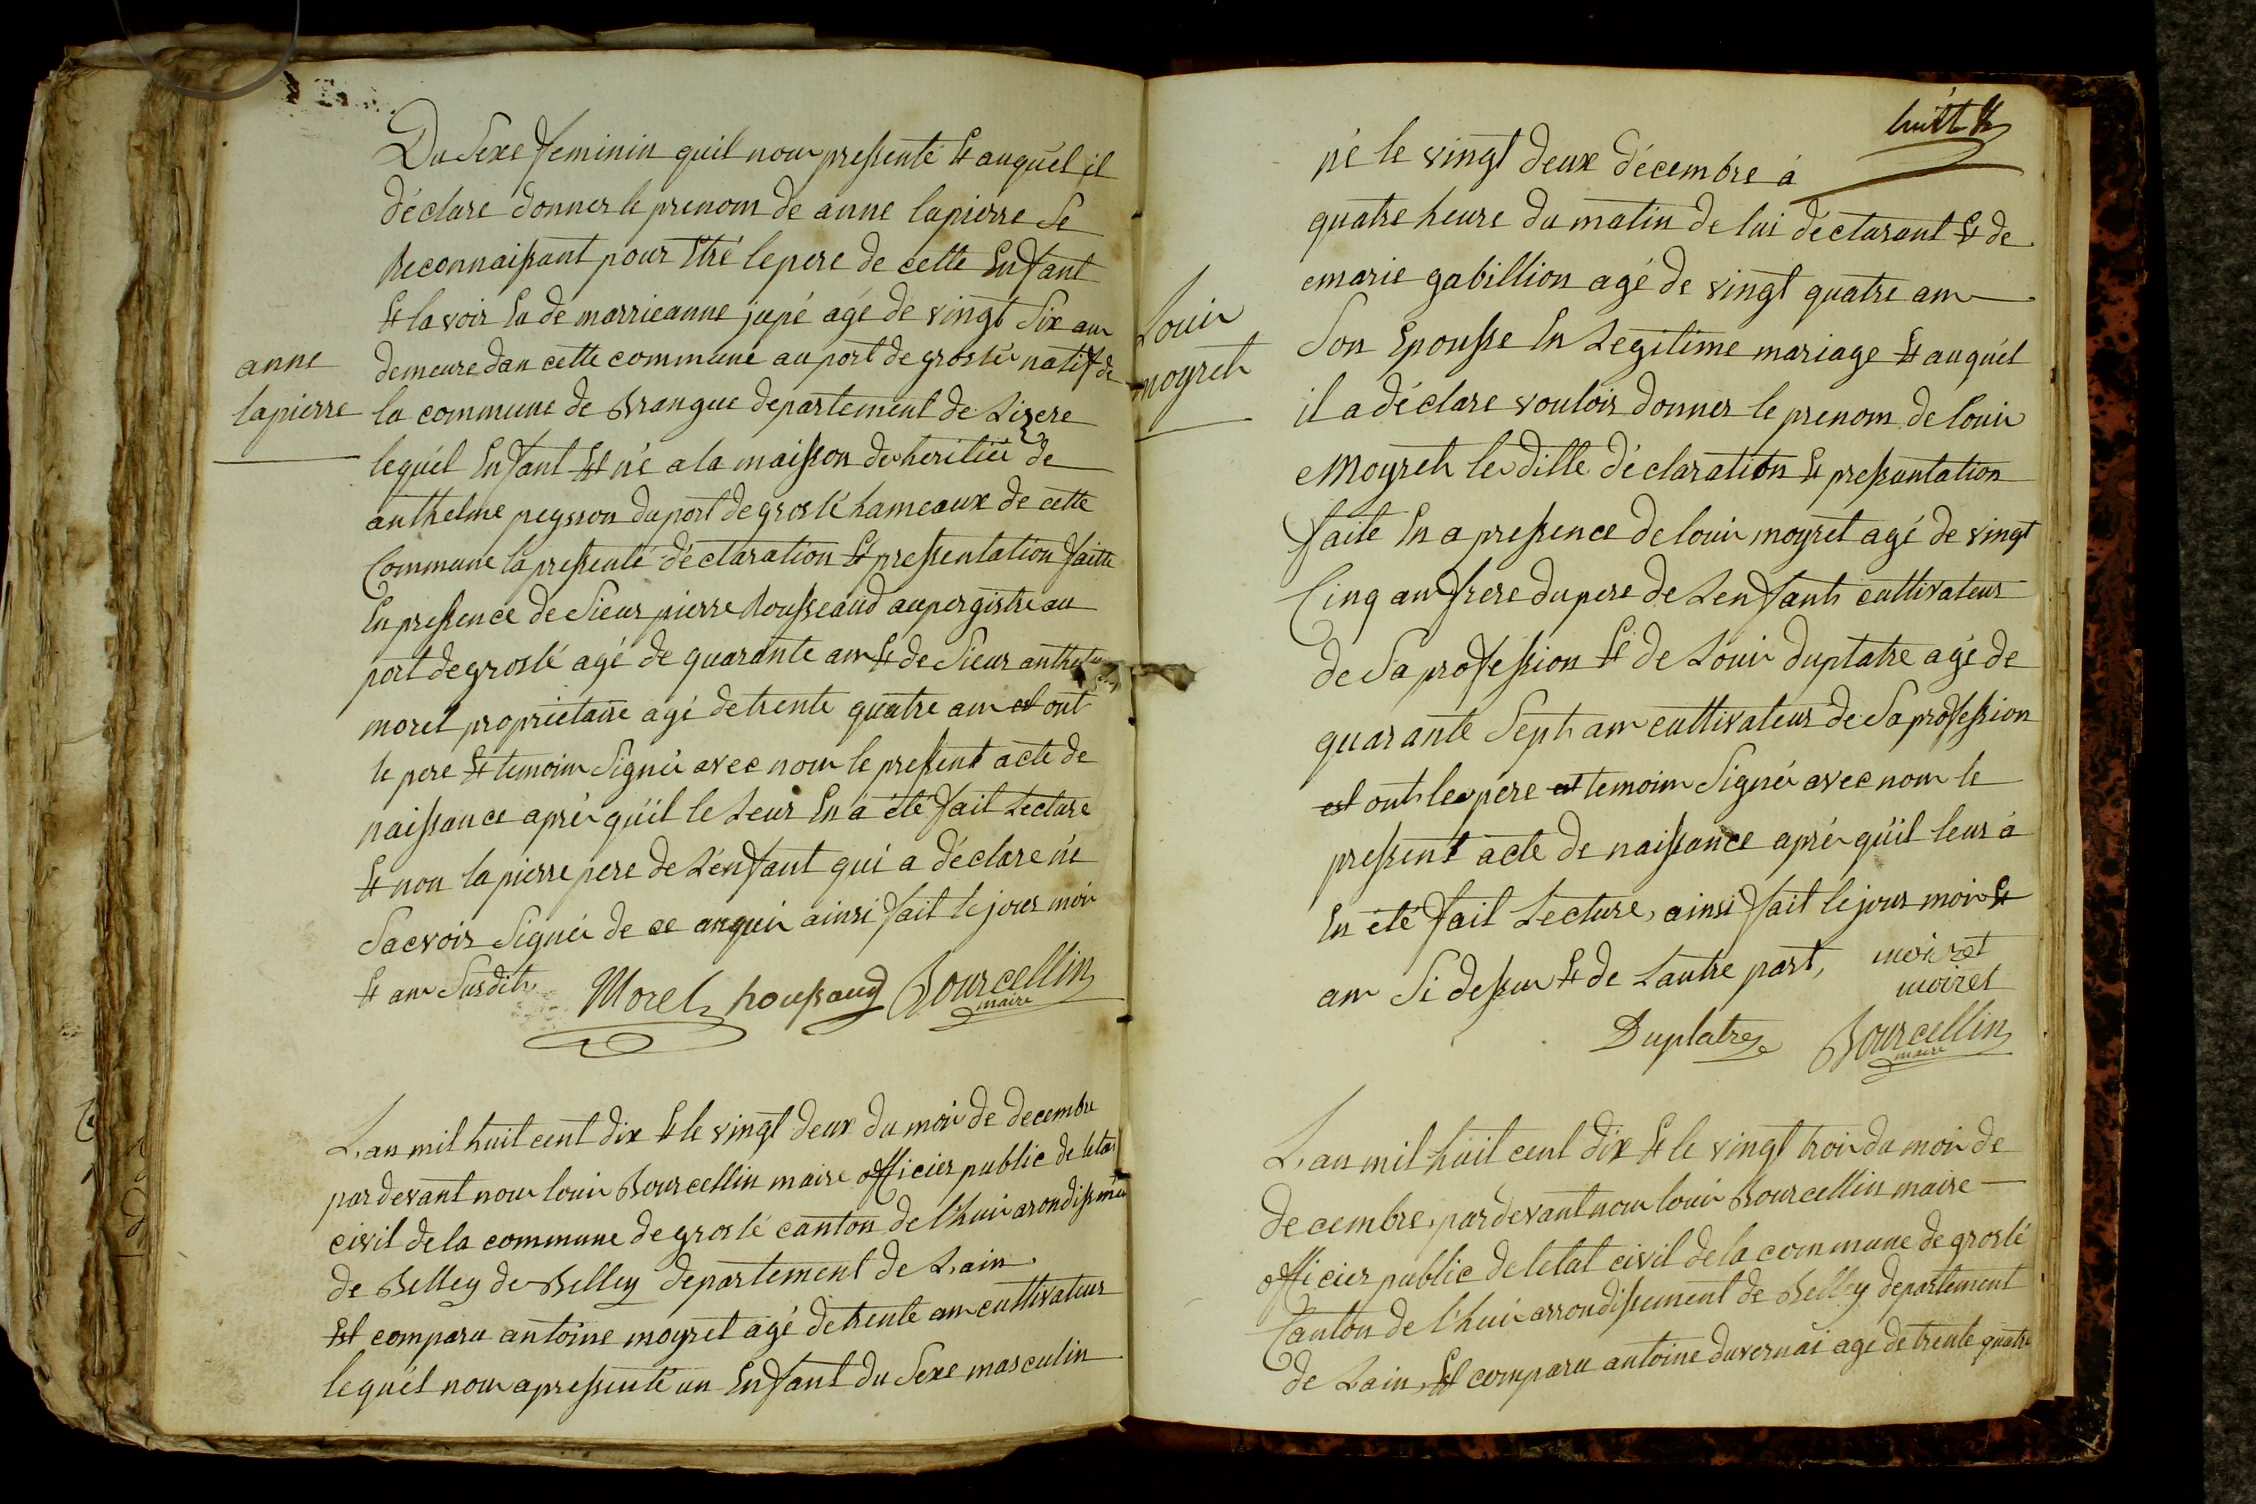 Du Sexe feminin quil nous pressenté Et auquél il
déclare donner le prenom de anne lapierre Se
Reconnaissant pour Etré le pere de cette Enfant
Et lavoir Eu de marrieanne jupé agé de vingt Six ans
anne
lapierre
demeure dan cette commune au port de groslé natif de
la commune de Brangue departement de Lizere
lequél Enfant Et né a la maisson des heritiér de
anthelme peysson du port de groslé hameaux de cette
Commune la pressenté déclaration Et pressentation faitte
En pressence de Sieur pierre Rousseaud au
port de groslé agé de quarante ans Et de Sieur
morel proprietaire agé de trente quatre ans est ont
le pere Et temoins Signés avec nous le pressent acte de
naissance aprés qúil le Leur En a été fait Lecture
Et non lapierre pere de Lénfant qui a déclare né
Sacvoir Signér de ce anquis ainsi fait le jours mois
Et ans Susdits Morel roussaud Bourcellin
maire
L,an mil huit cent dix Et le vingt deux du mois de decembre
par devant nous louis Bourcellin maire officier public de letat
civil de la commune de groslé canton de l'huis arondissment
de Belley de Belley departement de Lain
Est comparu antoine moyret agé de trente ans cultivateur
lequél nous a pressenté un Enfant du Sexe masculin
huitt
né le vingt deux décembre á
quatre heure du matin de lui déclarant Et de
marie gabillion agé de vingt quatre ans
Louis
moyret
Son Epousse En Legitime mariage Et auquél
il a déclare vouloir donner le prenom de louis
Moyret les ditte déclaration Et pressantation
faite En a pressence de louis moyret agé de vingt
Cinq ans frere du pere de Lenfant cultivateur
de Sa profession Et de Louis duplatre agé de
quarante Sept ans cultivateur de Sa profession
est ont les pére et temoins Signés avec nous le
pressent acte de naissance aprés qúil leur á
En été fait Lecture, ainsi fait le jour mois Et
ans Si dessus Et de Lautre part, moiret
moiret
Duplatre Bourcellin
maire
L,an mil húit cent dix Et le vingt trois du mois de
decembre, par devant nous louis Bourcellin maire
officier public de letat civil de la commune de groslé
Canton de l'huis arrondissement de Belley departement
de Lain, Est comparu antoine duvernai age de trente quatre